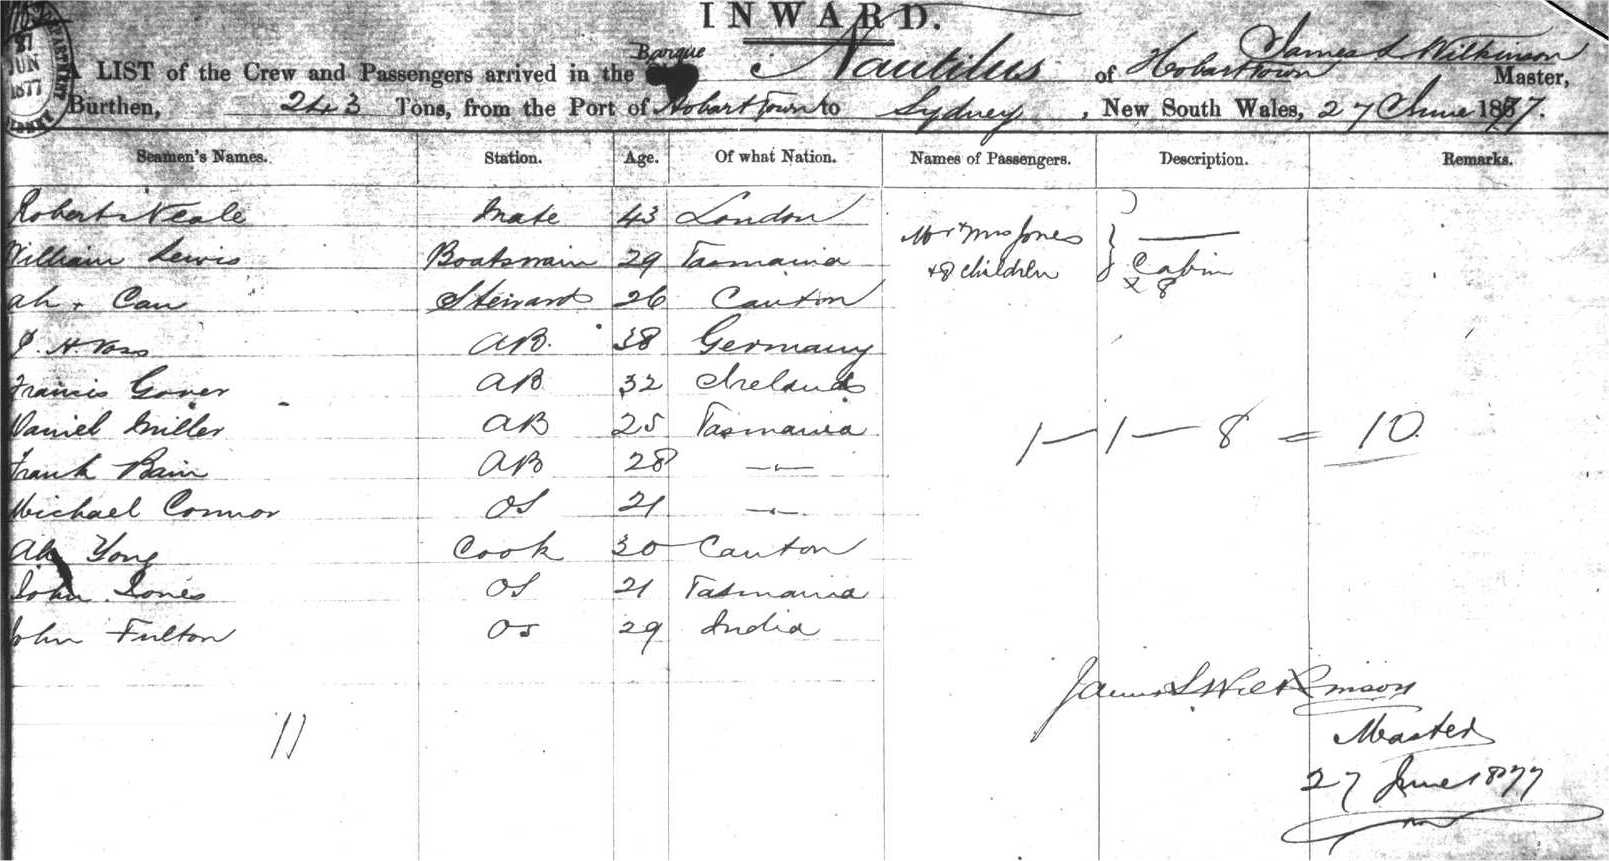 INWARD.
Barque
A LIST of the Crew and Passengers arrived in the Nautilus of Hobart Town James S. Wilkinson Master,
Burthen, 243 Tons, from the Port of Hobart Town to Sydney, New South Wales, 27 June 1877.
Seamen's Names. Station. Age. Of what Nation. Names of Passengers. Description. Remarks.
Robert Neale Mate 43 London
Mr & Mrs Jones
William Lewis Boatswain 29 Tasmania
& 8 children Cabin
& 8
Ah Can Steward 26 Canton
J. H. Voss AB. 38 Germany
Francis Gover AB 32 Ireland
Daniel Miller AB 25 Tasmania
1 — 1 — 8 = 10
Frank Bain AB 28 — " —
Michael Connor OS 21 — " —
Ah Yong Cook 30 Canton
John Jones OS 21 Tasmania
John Fulton OS 29 India
James S Wilkinson
11
Master
27 June 1877
JUN
1877